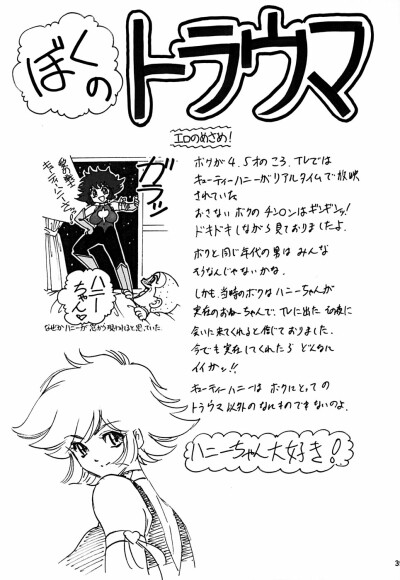 ぼくの
トラウマ
エロのめざめ!
ボクが4.5才のころ、TVでは
キューティーハニーがリアルタイムで放映
されていた。
おさないボクのチンロンはギンギンッ!
ドキドキしながら見ておりましたよ。
ボクと同じ年代の男はみんな
そうなんじゃないかな。
しかも、当時のボクはハニーちゃんが
実在のおねーちゃんで、TVに出たその夜に
会いに来てくれると信じておりました。
今でも実在してくれたらどんなに
イイカッ!!
キューティーハニーはボクにとっての
トラウマ以外のなにものでもないのよ。
ガラッ
キューティーハニーさ
ハニーちゃん
なぜかハニーが窓から現われると思っていた
ハニーちゃん大好き!